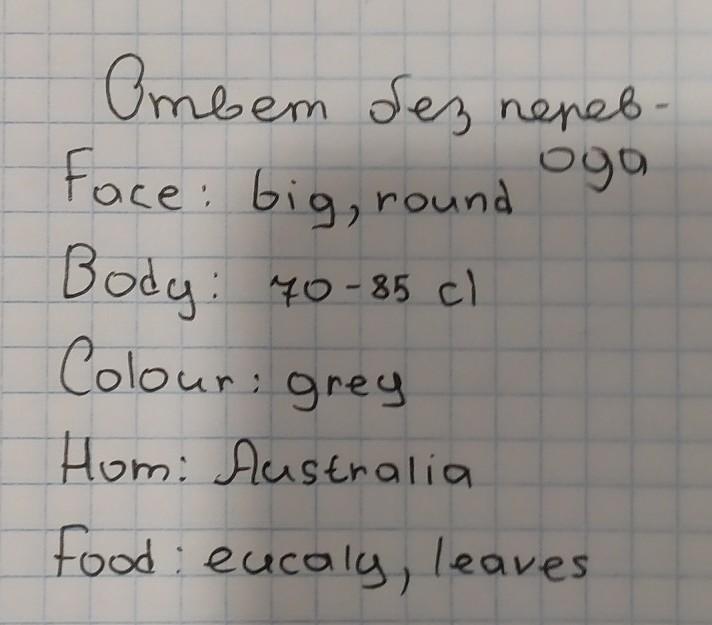 Ответ без перев-
ода
Face: big, round
Body: 70-85 cl
Colour: grey
Hom: Australia
Food: eucaly, leaves